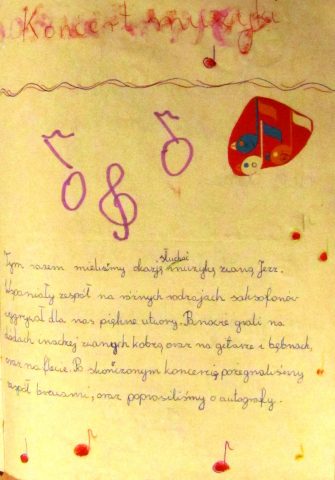 Koncert muzyki
słuchać
Tym razem mieliśmy okazję muzykę zwaną Jezz.
Wspaniały zespół na różnych rodzajach saksofonów
wygrywał dla nas piękne utwory. Panowie grali na
zwanych kobrą oraz na gitarze i bębnach,
oraz na flecie. Po skończonym koncercie pożegnaliśmy
zespół brawami, oraz poprosiliśmy o autografy.